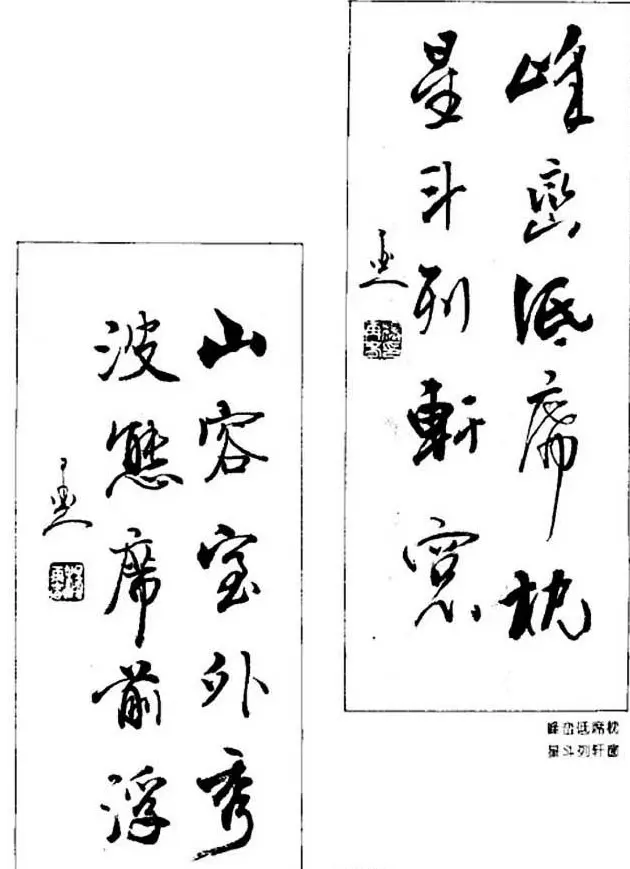 峰巒低席枕
星斗列軒窗
峰峦低席枕
星斗列轩窗
山容室外秀
波態席前浮